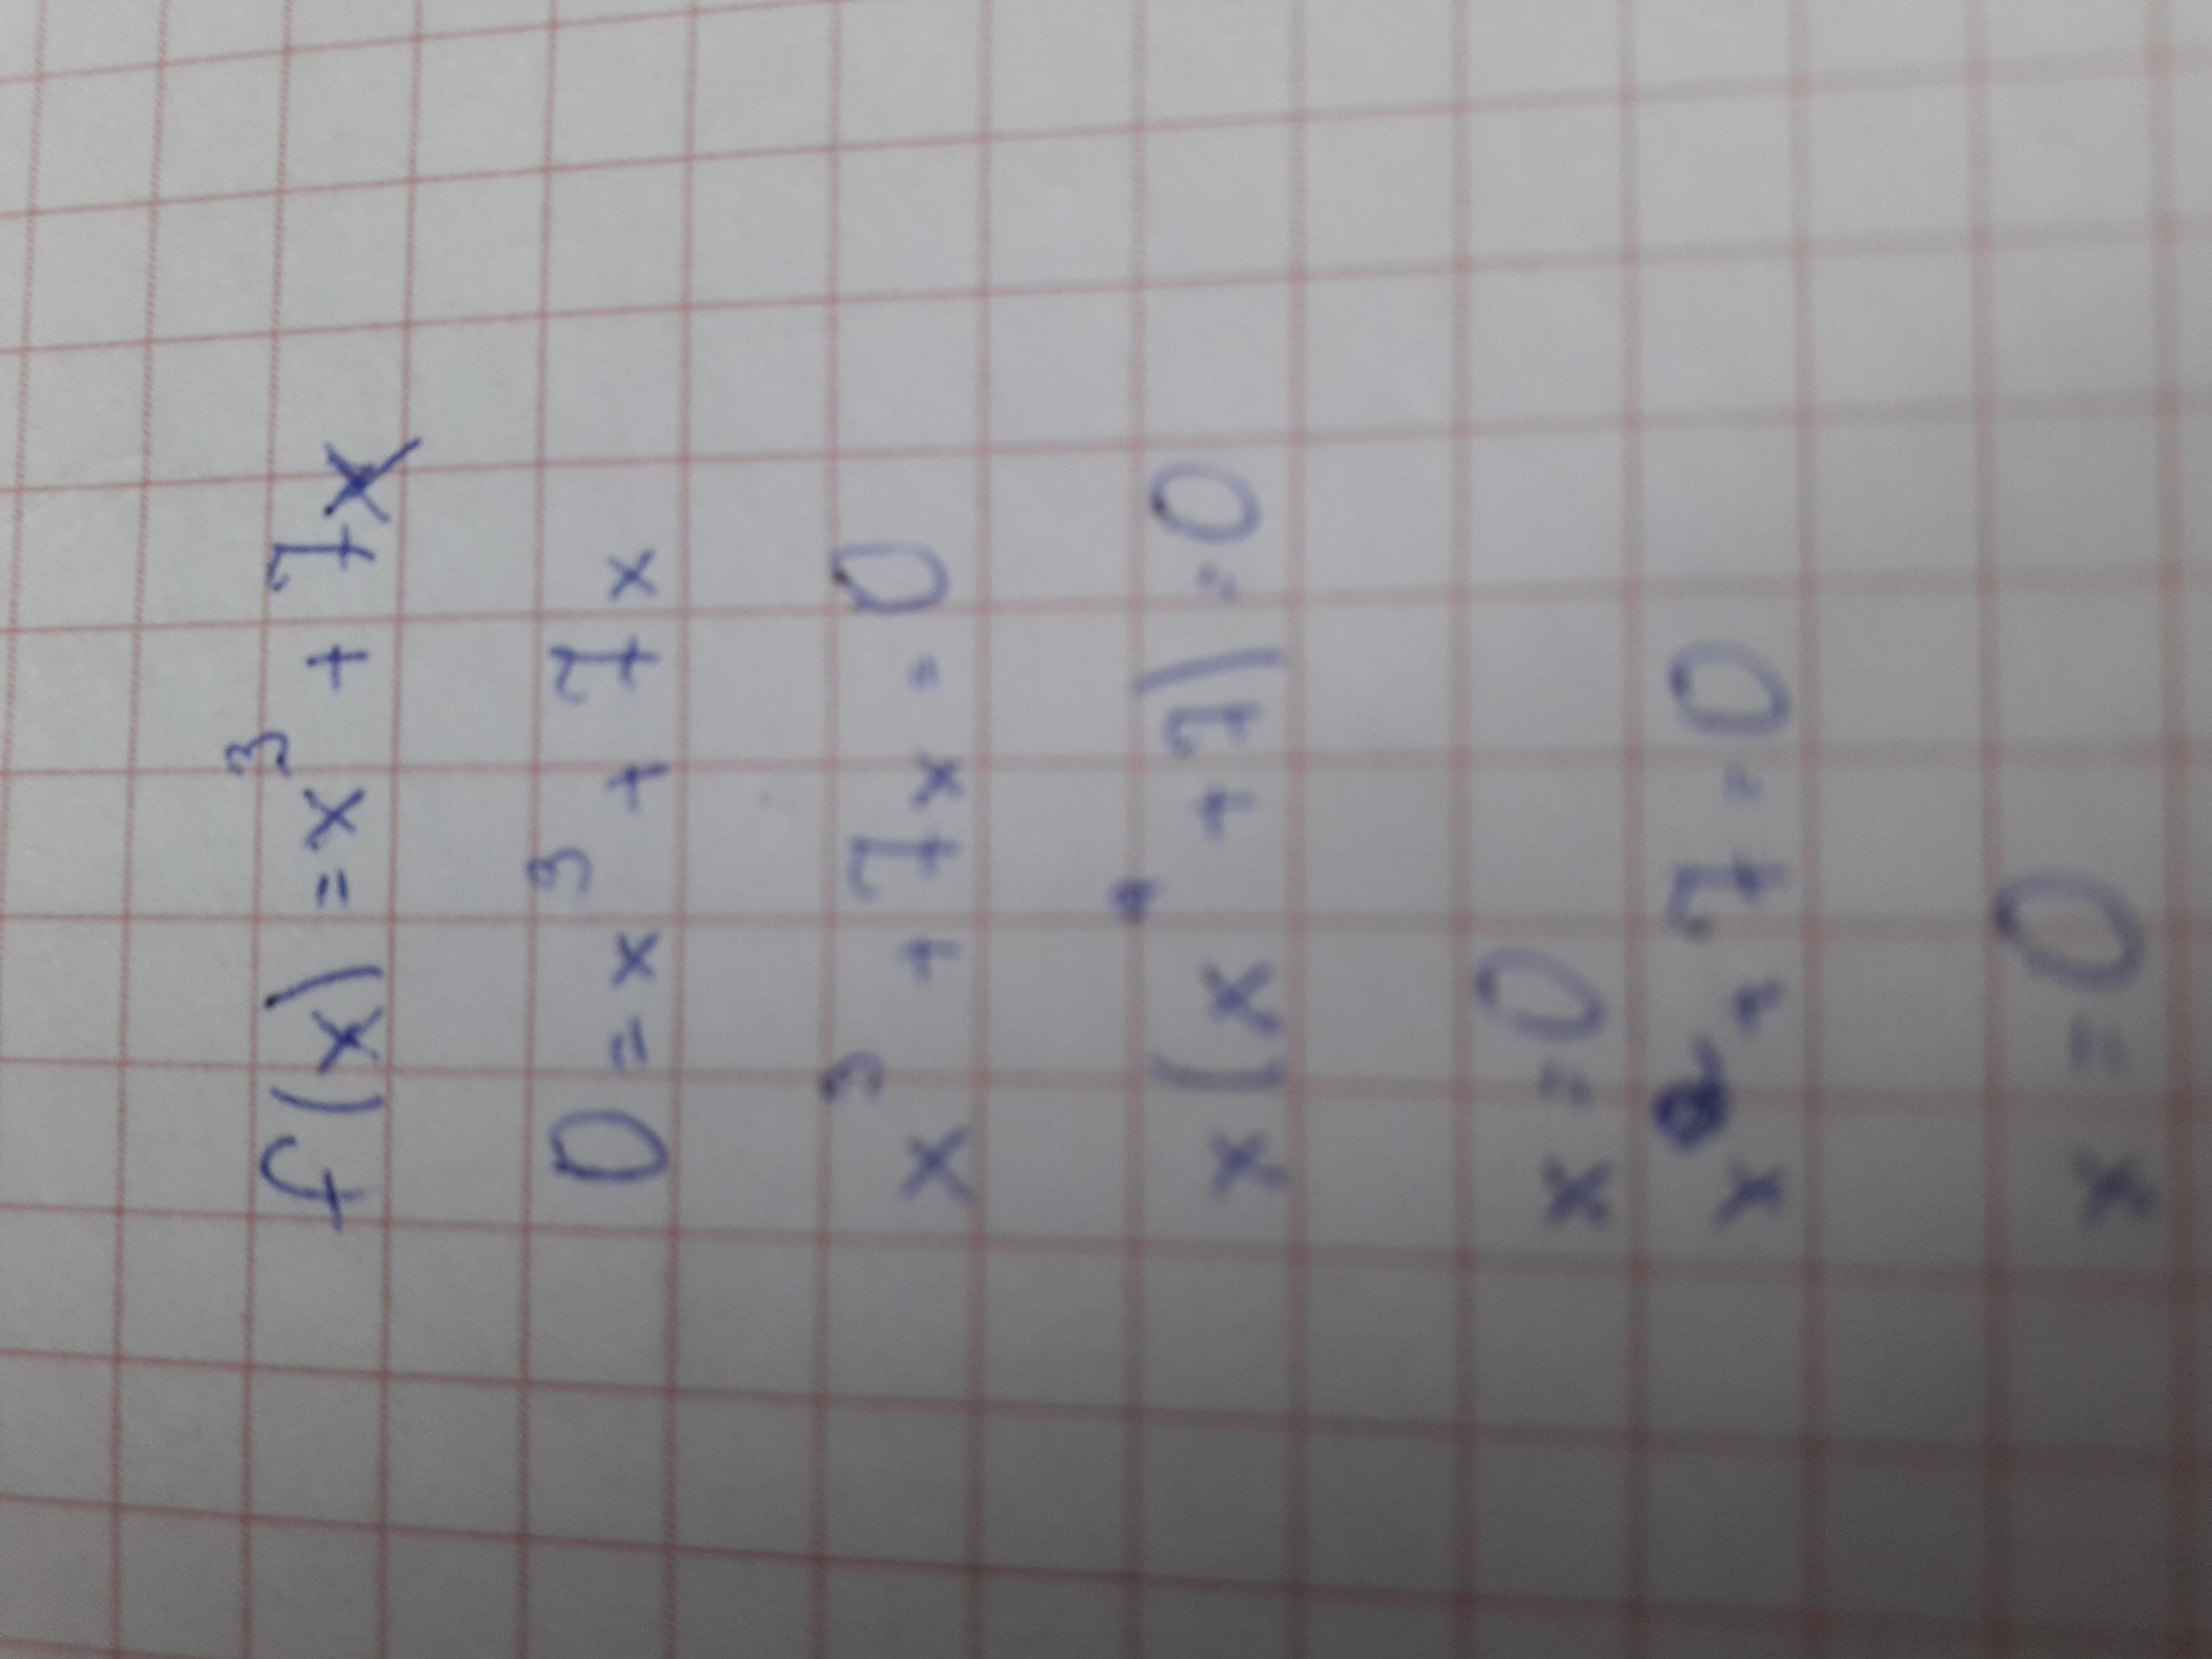 f(x) = x³ + 7x
0 = x³ + 7x
x³ + 7x = 0
x(x² + 7) = 0
x = 0
x² + 7 = 0
x = 0